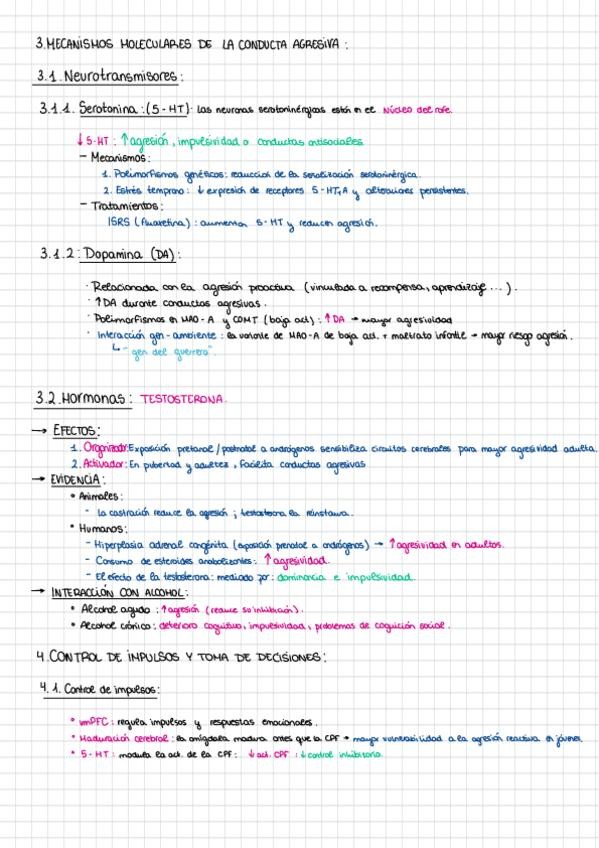 3. MECANISMOS MOLECULARES DE LA CONDUCTA AGRESIVA:
3.1. Neurotransmisores:
3.1.1. Serotonina: (5-HT). Las neuronas serotoninérgicas están en el Núcleo del rafe.
↓ 5-HT: ↑ agresión, impulsividad o conductas antisociales
- Mecanismos:
1. Polimorfismos genéticos: reducción de la señalización serotoninérgica.
2. Estrés temprano: ↓ expresión de receptores 5-HT₁A y alteraciones persistentes.
- Tratamientos:
ISRS (fluoxetina): aumentan 5-HT y reducen agresión.
3.1.2: Dopamina (DA):
· Relacionada con la agresión proactiva (vinculada a recompensa, aprendizaje ...).
· ↑DA durante conductas agresivas.
· Polimorfismos en MAO-A y COMT (baja act): ↑DA → mayor agresividad
· Interacción gen-ambiente: la variante de MAO-A de baja act. + maltrato infantil → mayor riesgo agresión.
↳ "gen del guerrero".
3.2. Hormonas: TESTOSTERONA.
→ EFECTOS:
1. Organizador: Exposición prenatal / postnatal a andrógenos sensibiliza circuitos cerebrales para mayor agresividad adulta.
2. Activador: En pubertad y adultez, facilita conductas agresivas
→ EVIDENCIA:
• Animales:
- La castración reduce la agresión; testosterona la reinstaura.
• Humanos:
- Hiperplasia adrenal congénita (exposición prenatal a andrógenos) → ↑agresividad en adultos.
- Consumo de esteroides anabolizantes: ↑agresividad.
- El efecto de la testosterona: mediado por: dominancia e impulsividad.
→ INTERACCIÓN CON ALCOHOL:
• Alcohol agudo: ↑agresión (reduce su inhibición).
• Alcohol crónico: deterioro cognitivo, impulsividad, problemas de cognición social.
4. CONTROL DE IMPULSOS Y TOMA DE DECISIONES:
4.1. Control de impulsos:
• vmPFC: regula impulsos y respuestas emocionales.
• Maduración cerebral: la amígdala madura antes que la CPF → mayor vulnerabilidad a la agresión reactiva en jóvenes.
• 5-HT: modula la act. de la CPF: ↓act. CPF: ↓control inhibitorio.